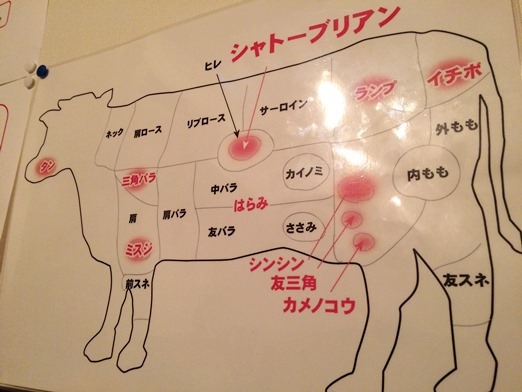 シャトーブリアン
ヒレ
ネック
肩ロース
リブロース
サーロイン
ランプ
イチボ
外もも
タン
三角バラ
中バラ
カイノミ
内もも
肩
肩バラ
はらみ
ミスジ
友バラ
ささみ
前スネ
シンシン
友三角
カメノコウ
友スネ